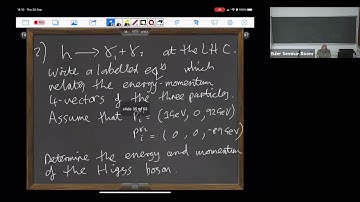 14:10 Thu 26 Sep
2) h → γ₁ + γ₂ at the LHC.
Write a labelled eqⁿ which
relates the energy-momentum
4-vectors of the three particles.
Assume that
= (0, 0, -89GeV)
Determine the energy and momentum
of the Higgs boson.
Euler Seminar Room